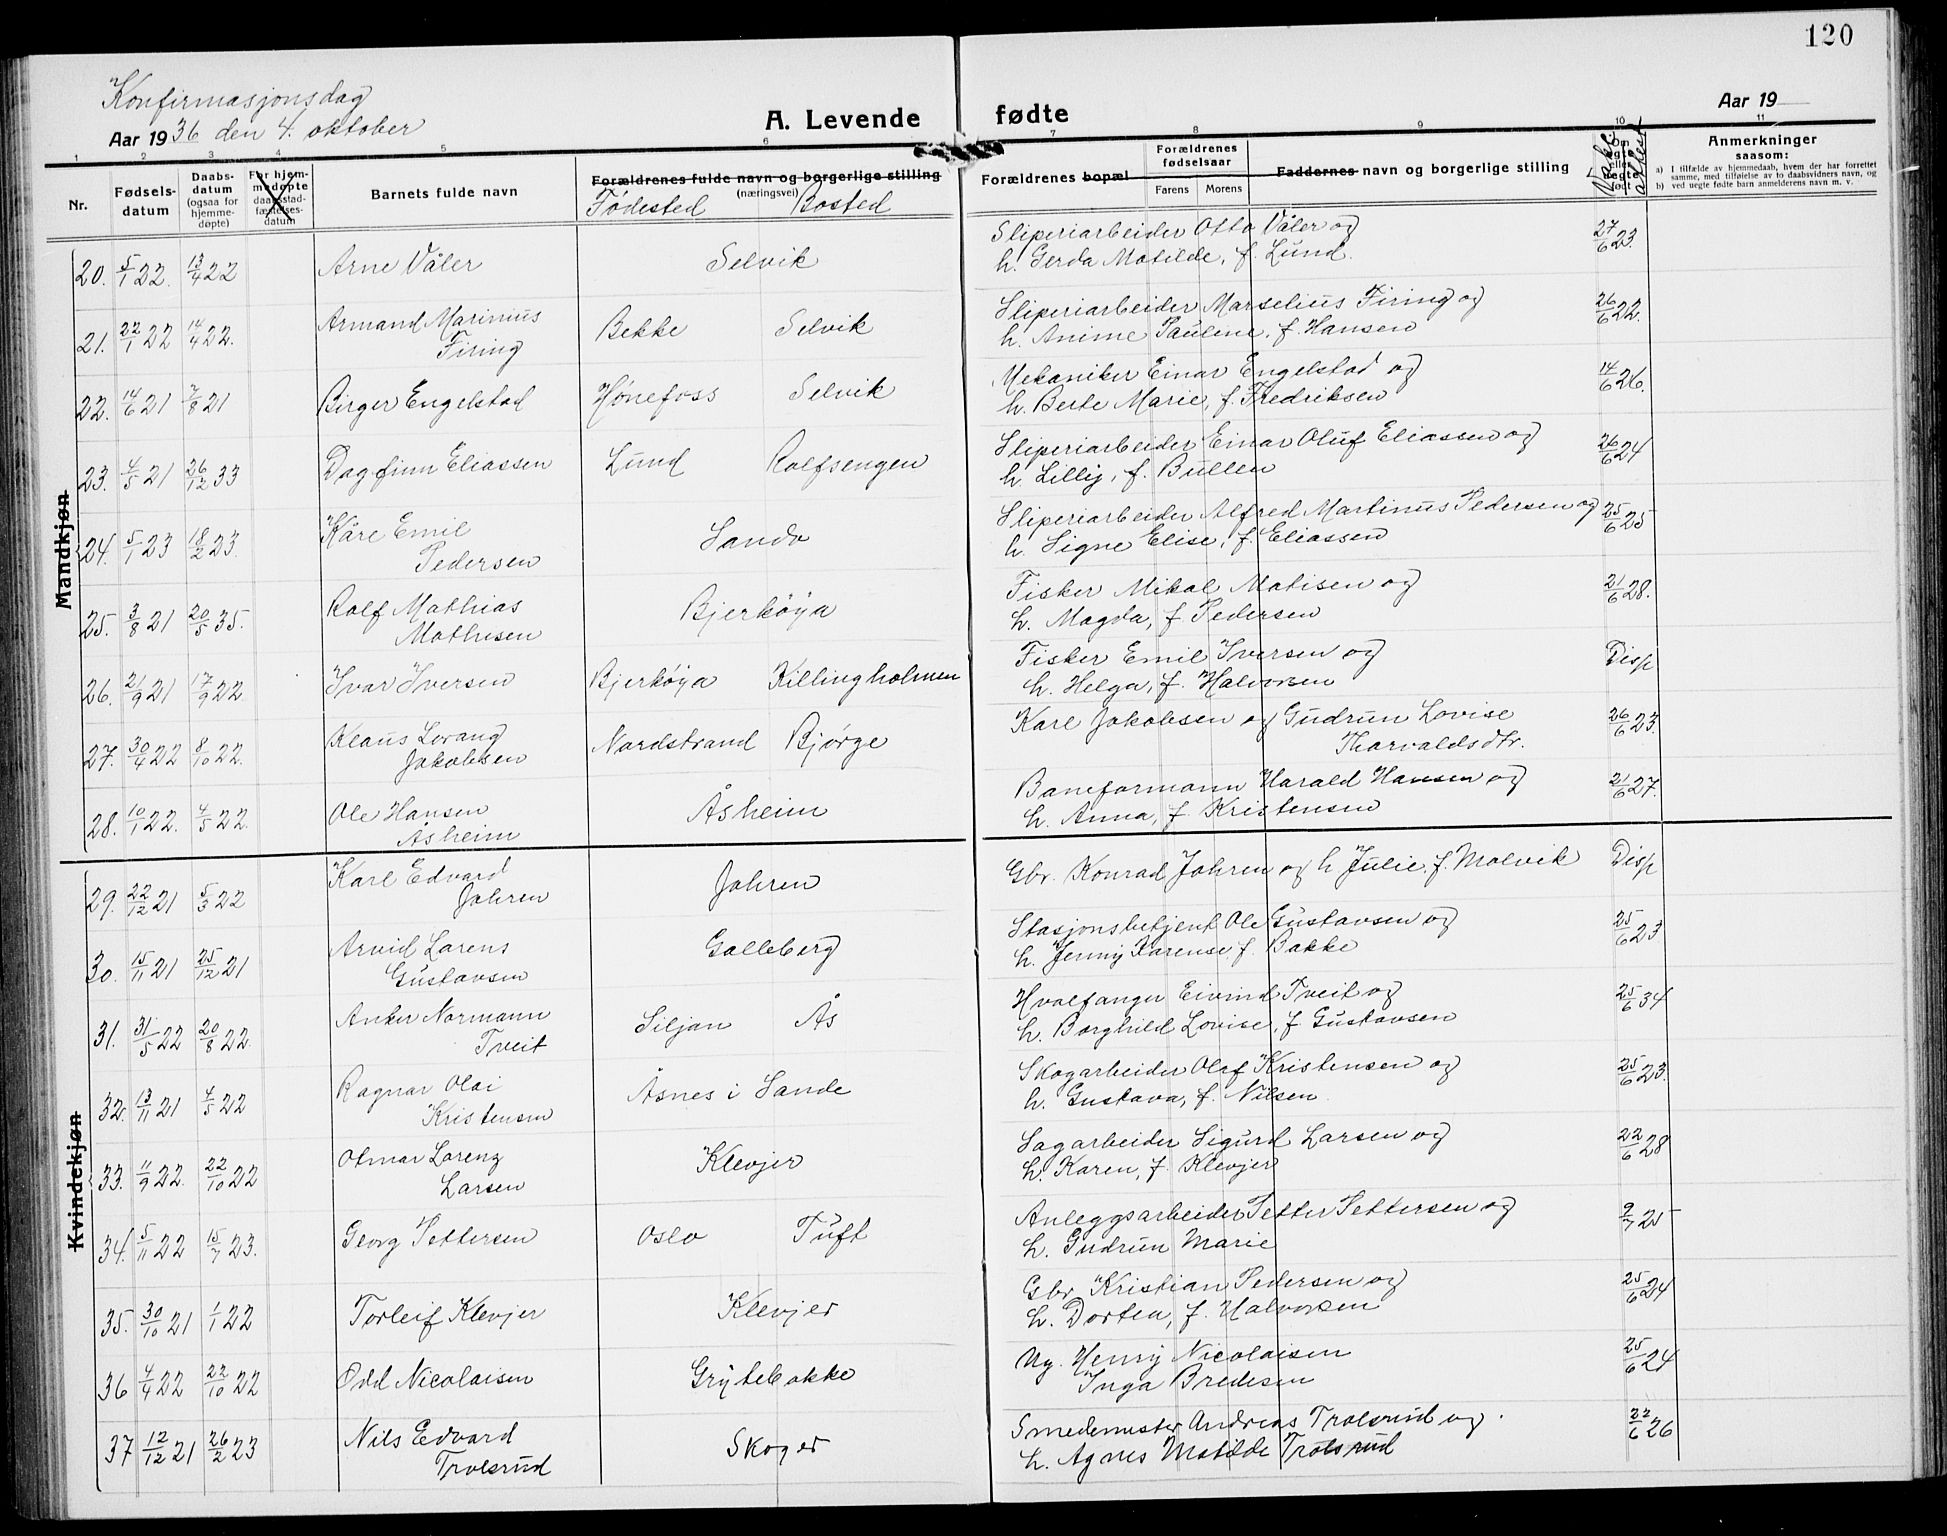 120
Konfirmasjonsdag
Aar 1936 den 4. oktober
A. Levende fødte
Aar 19
1 2 3 4 5 6 7 8 9 10 11
Nr.
Fødsels-
datum
Daabs-
datum
(ogsaa for
hjemme-
døpte)
For hjem-
medøpte
daabsstad-
fæstelses-
datum
Barnets fulde navn
Forældrenes fulde navn og borgerlige stilling
(næringsvei)
Fødested Bosted
Forældrenes bopæl
Forældrenes
fødselsaar
Farens Morens
Faddernes navn og borgerlige stilling
Om
egte
eller
uegte
født
Anmerkninger
saasom:
a) I tilfælde av hjemmedaab, hvem der har forrettet
samme, med tilføielse av to daabsvidners navn, og
b) ved uegte fødte barn anmelderens navn m. v.
Mandkjøn
20. 5/1 22. 13/4 22 Arne Våler Selvik Sliperiarbeider Otto Våler og 27/6 23
h. Gerda Matilde, f. Lund.
21. 22/1 22 14/4 22. Armand Marinius Bekke Selvik Sliperiarbeider Marselius Firing og 26/6 22.
Firing h. Anine Pauline, f. Hansen
22. 14/6 21 7/8 21 Birger Engelstad Hønefoss Selvik Mekaniker Einar Engelstad og 14/6 26.
h. Berte Marie, f. Fredriksen
23. 4/5 21 26/12 33 Dagfinn Eliassen Lund Rolfsengen Sliperiarbeider Einar Oluf Eliassen og 26/6 24
h. Lilly, f. Bullen
24. 5/1 23 18/2 23. Kåre Emil Sande Sliperiarbeider Alfred Martinus Pedersen og 25/6 25
Pedersen h. Signe Elise, f. Eliassen
25. 3/8 21 20/5 35. Rolf Mathias Bjerkøya Fisker Mikal Matisen og 21/6 28.
Mathisen h. Magda, f Pedersen
26. 21/9 21 17/9 22 Ivar Iversen Bjerkøya Killingholmen Fisker Emil Iversen og Disp
h. Helga, f. Halvorsen
27. 30/4 22 8/10 22. Klaus Lorang Nordstrand Bjørge Karl Jakobsen og Gudrun Lovise 26/6 23.
Jakobsen Thorvaldsdtr.
28. 10/1 22. 4/5 22. Ole Hansen Åsheim Baneformann Harald Hansen og 21/6 27.
Åsheim h. Anna, f Kristensen
Kvindekjøn
29. 22/12 21 5/3 22 Karl Edvard Johren Gbr. Konrad Johren og h Julie, f. Molvik Disp
Johren
30. 15/11 21 25/12 21 Arvid Lorens Galleberg Stasjonsbetjent Ole Gustavsen og 25/6 23
Gustavsen h. Jenny Karense, f. Bakke
31. 31/5 22 20/8 22. Anker Normann Siljan Ås Hvalfanger Eivind Tveit og 25/6 34
Tveit h. Borghild Lovise, f Gustavsen
32. 13/11 21 4/5 22 Ragnar Olai Åsnes i Sande Skogarbeider Olaf Kristensen og 25/6 23.
Kristensen h. Gustava, f. Nilsen
33. 11/9 22. 22/10 22 Otmar Lorenz Klevjer Sagarbeider Sigurd Larsen og 22/6 28
Larsen h. Karen, f. Klevjer
34. 5/11 22 15/7 23. Georg Pettersen Oslo Tuft Anleggsarbeider Petter Pettersen og 9/7 25
h. Gudrun Marie
35. 30/10 21 1/1 22 Torleif Klevjer Klevjer Gbr Kristian Pedersen og 25/6 24
h. Dortea, f. Halvorsen
36 4/4 22 22/10 22 Odd Nicolaisen Grytebakke Ug. Henry Nicolaisen 25/6 24
Inga Bredesen
37 12/12 21 26/2 23 Nils Edvard Skoger Smedemester Andreas Trolsrud og 22/6 26
Trolsrud h. Agnes Matilde Trolsrud